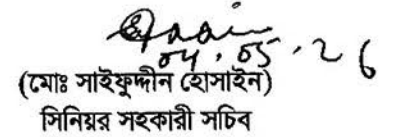 04.05.26
(মোঃ সাইফুদ্দীন হোসাইন)
সিনিয়র সহকারী সচিব